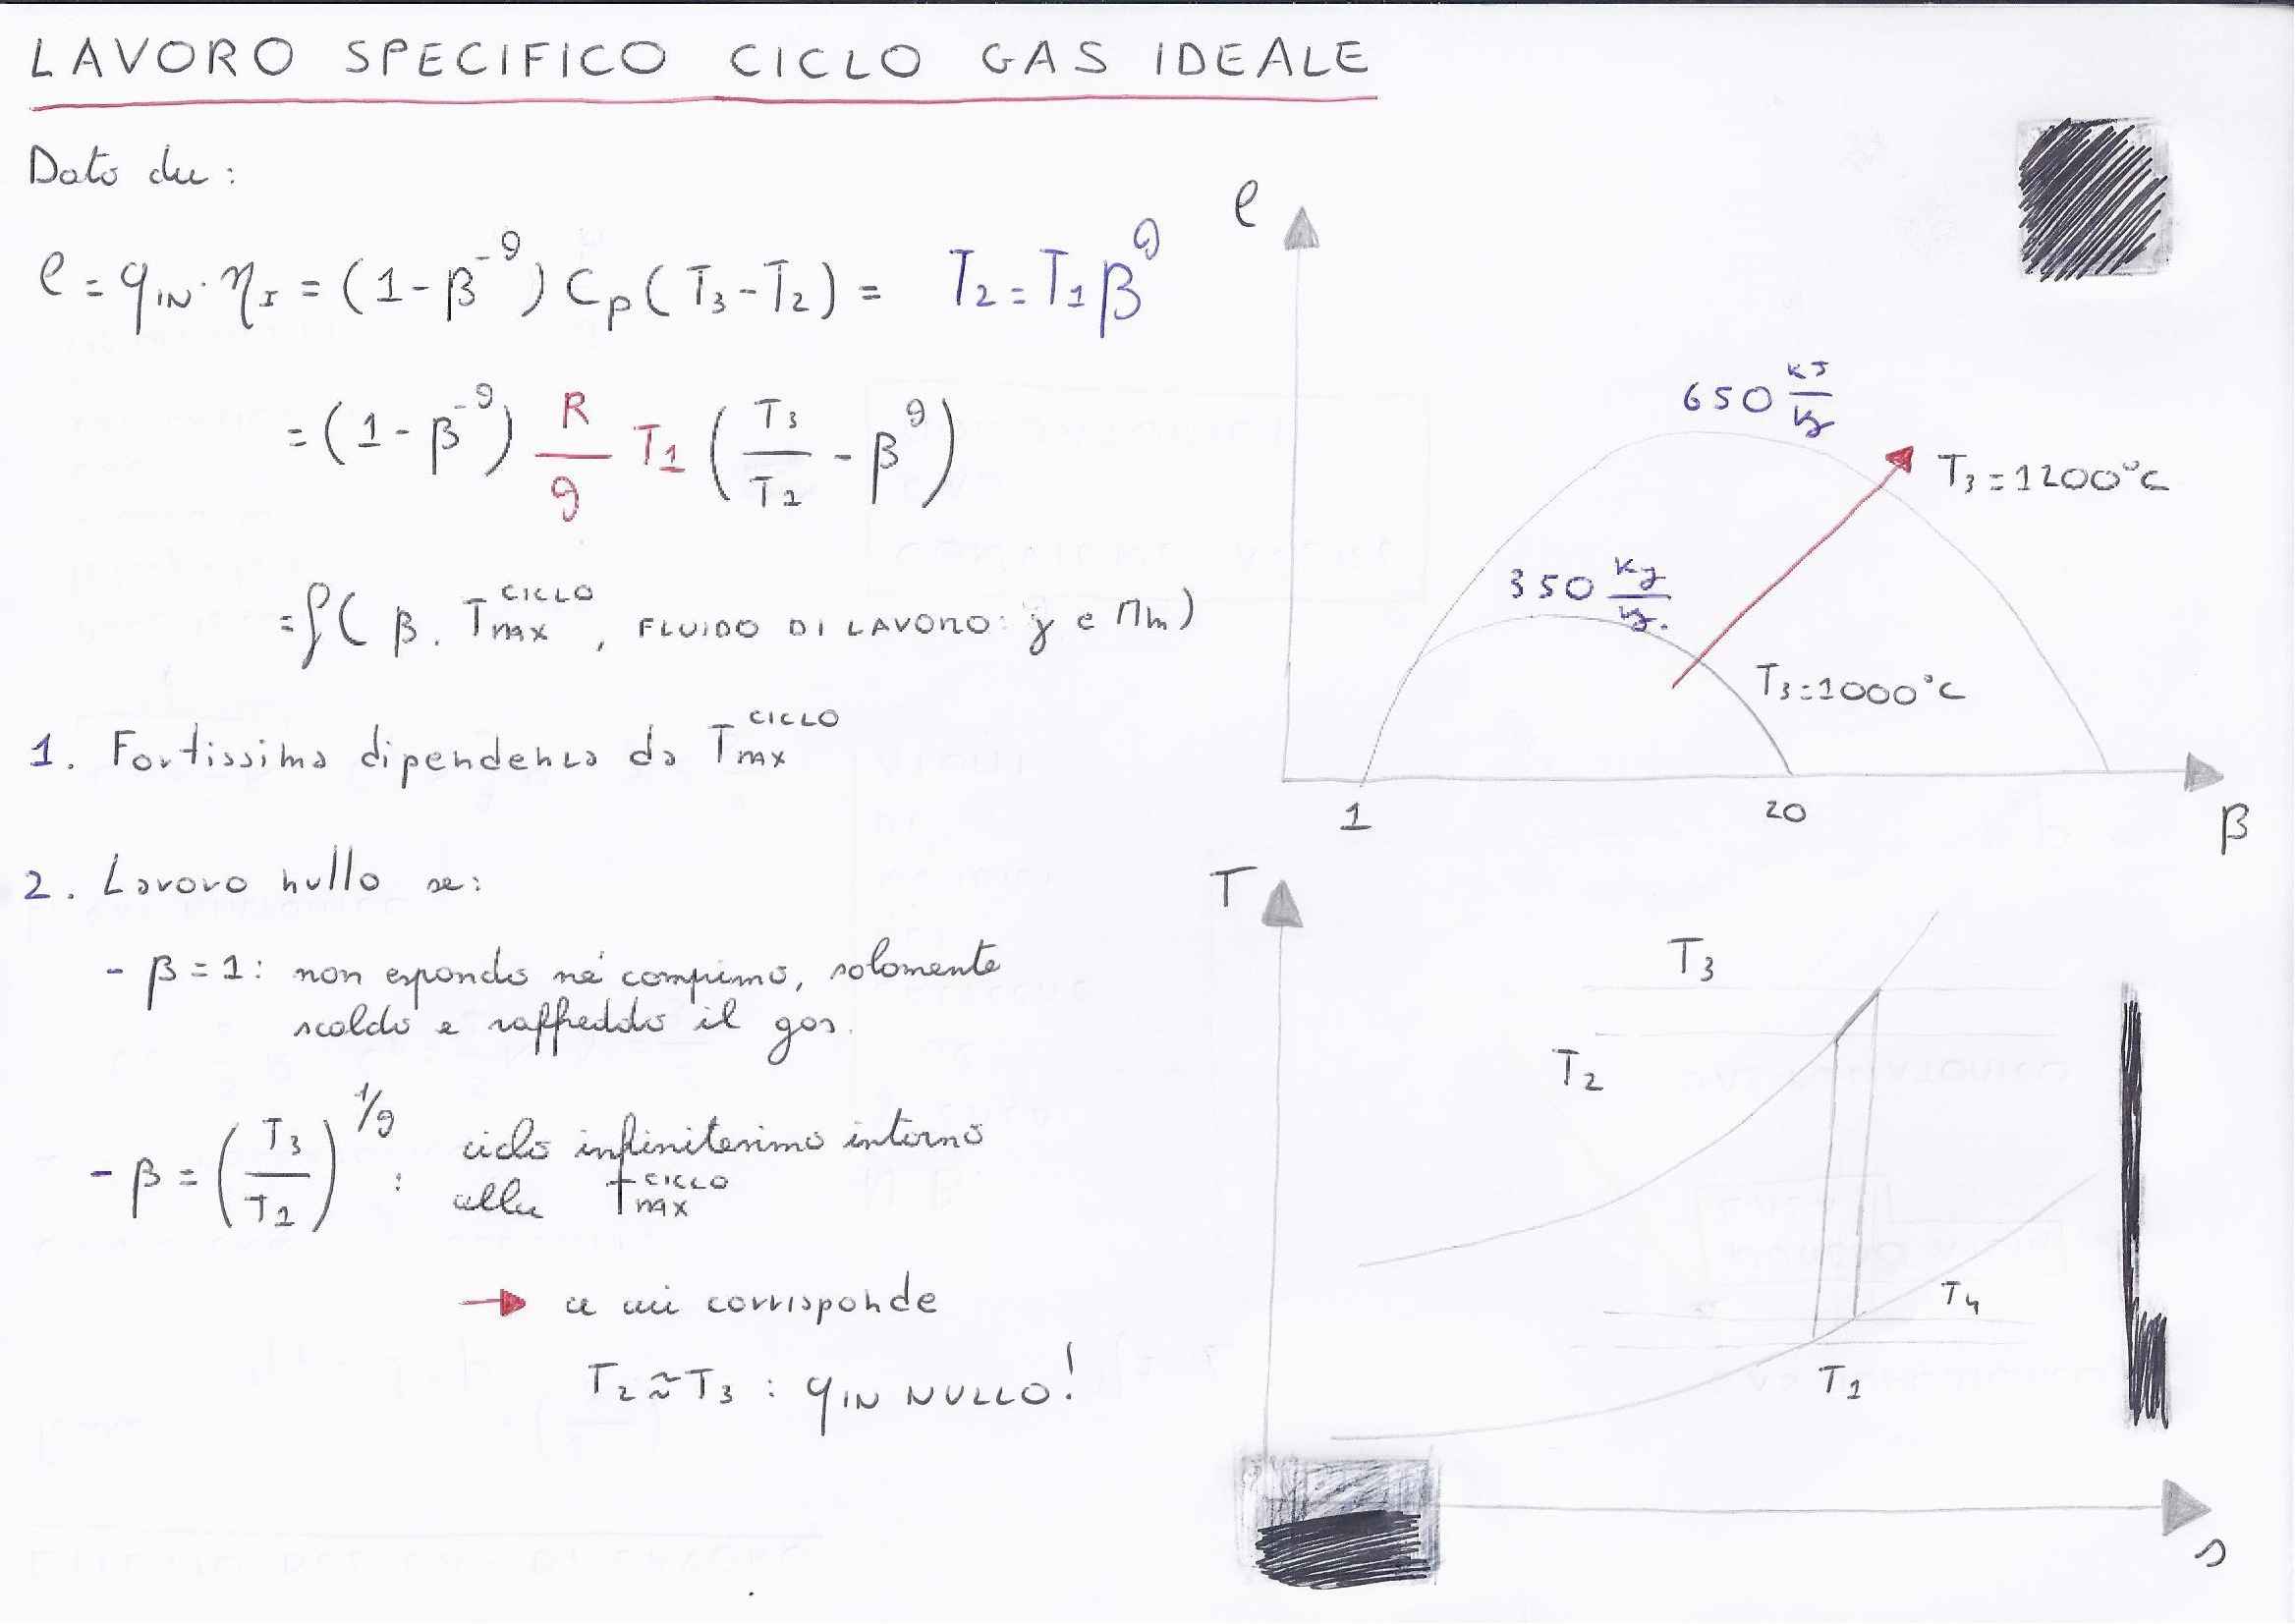 LAVORO SPECIFICO CICLO GAS IDEALE
Dato che:
l = q_IN · η_I = (1 - β^-ϑ) Cp (T3 - T2) = T2 = T1 β^ϑ
= (1 - β^-ϑ) R/ϑ T1 (T3/T1 - β^ϑ)
= f( β, T_max^CICLO, FLUIDO DI LAVORO: γ e Mm)
1. Fortissima dipendenza da T_max^CICLO
2. Lavoro nullo se:
- β = 1: non espando né comprimo, solamente
scaldo e raffreddo il gas.
- β = (T3/T1)^1/ϑ : ciclo infinitesimo intorno
alla T_max^CICLO
→ a cui corrisponde
T2 ≈ T3 : q_IN NULLO!
l
650 kJ/kg
T3 = 1200°C
350 kJ/kg.
T3 = 1000°C
1
20
β
T
T3
T2
T4
T1
s